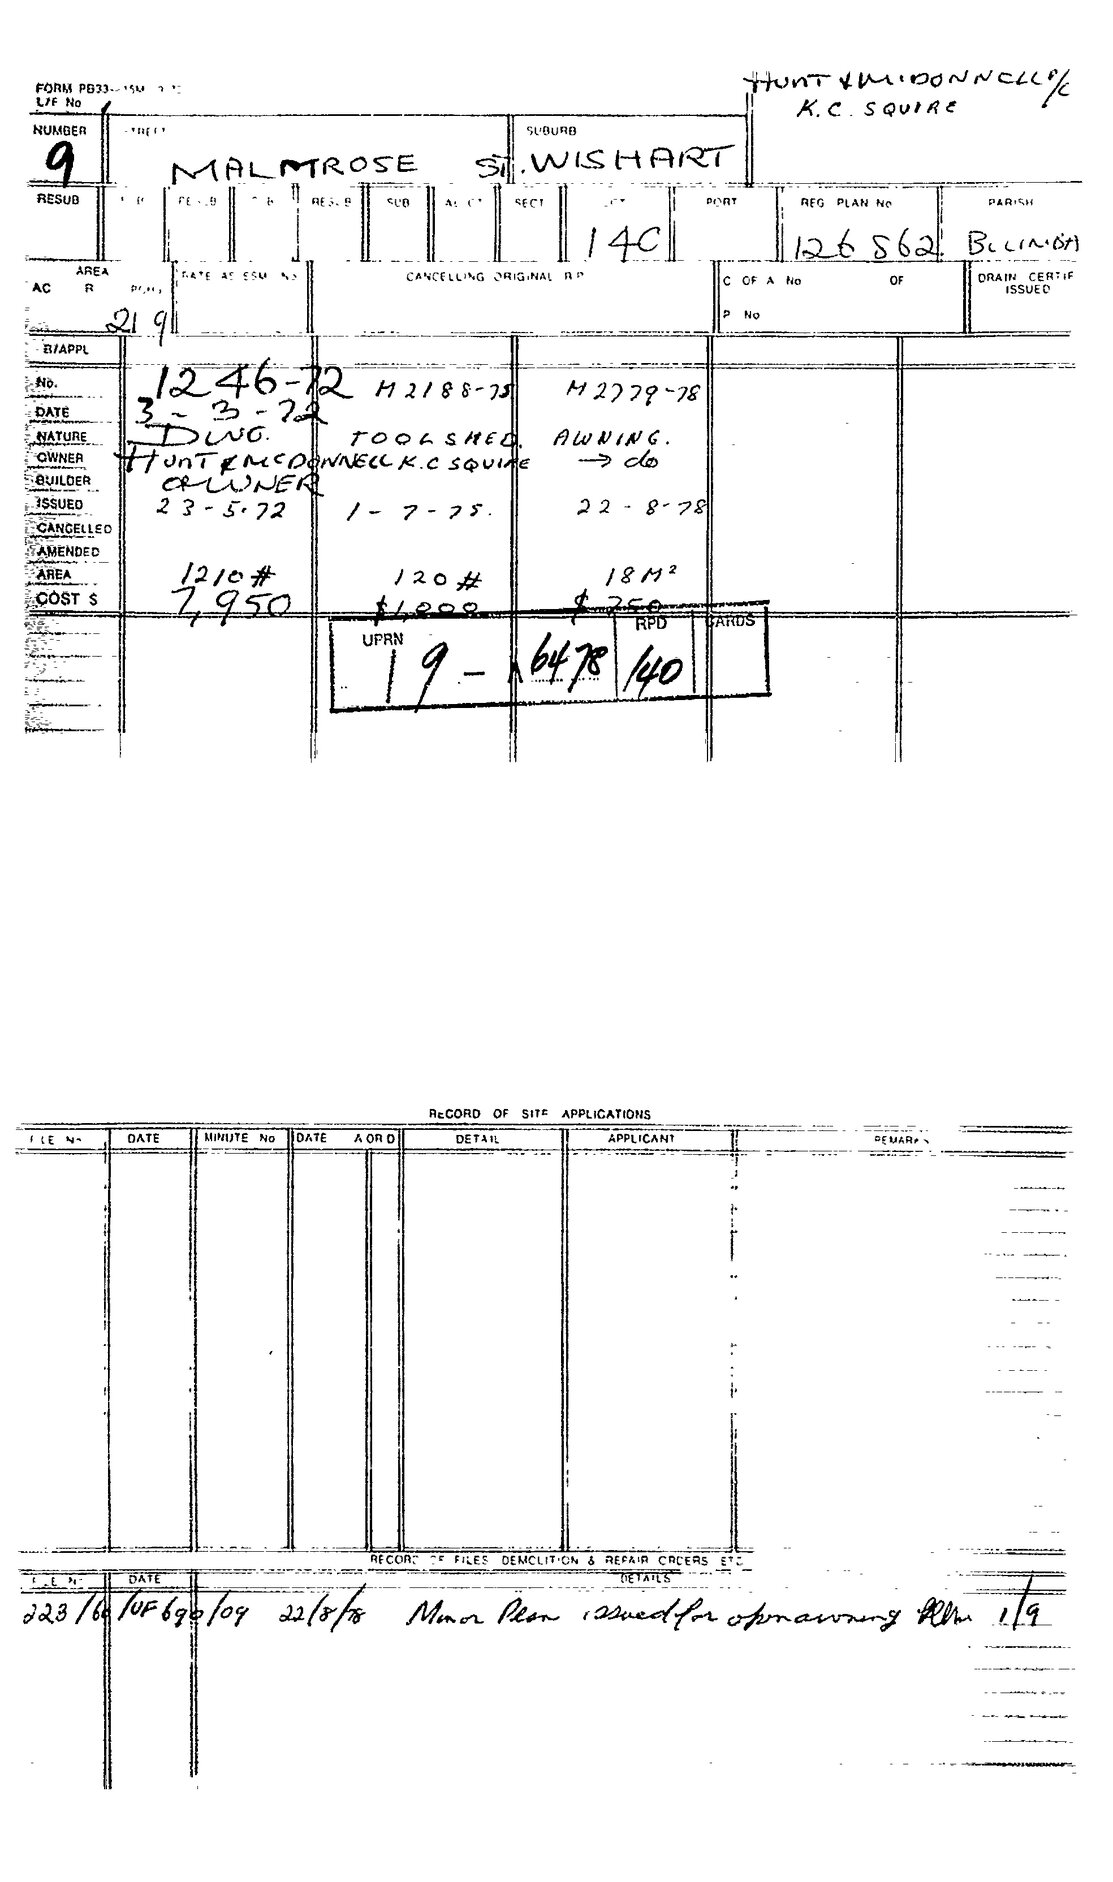 HUNT & McDONNELL P/C
FORM PB33
L/F No
K.C. SQUIRE
NUMBER STREET SUBURB
9 MALMROSE ST. WISHART
RESUB RESUB RESUB SUB ALLOT SECT LOT PORT REG PLAN No PARISH
14C 126862
AREA RATE ASESSM. No CANCELLING ORIGINAL R P C OF A No OF DRAIN CERTIF
AC R ISSUED
P No
21 9
B/APPL
No. 1246-72 M2188-75 M2779-78
DATE 3-3-72
NATURE DWG. TOOLSHED. AWNING.
OWNER HUNT & McDONNELL K.C SQUIRE → do
BUILDER OWNER
ISSUED 23-5-72 1-7-75. 22-8-78
CANCELLED
AMENDED
AREA 1210# 120# 18M²
COST $ 7,950 $1,000 $250
UPRN RPD CARDS
19 - 6478 140
RECORD OF SITE APPLICATIONS
FILE No DATE MINUTE No DATE A OR D DETAIL APPLICANT REMARKS
RECORD OF FILES DEMOLITION & REPAIR ORDERS ETC
FILE No DATE DETAILS
22/8/78 Minor Plan issued for open awning 1/9